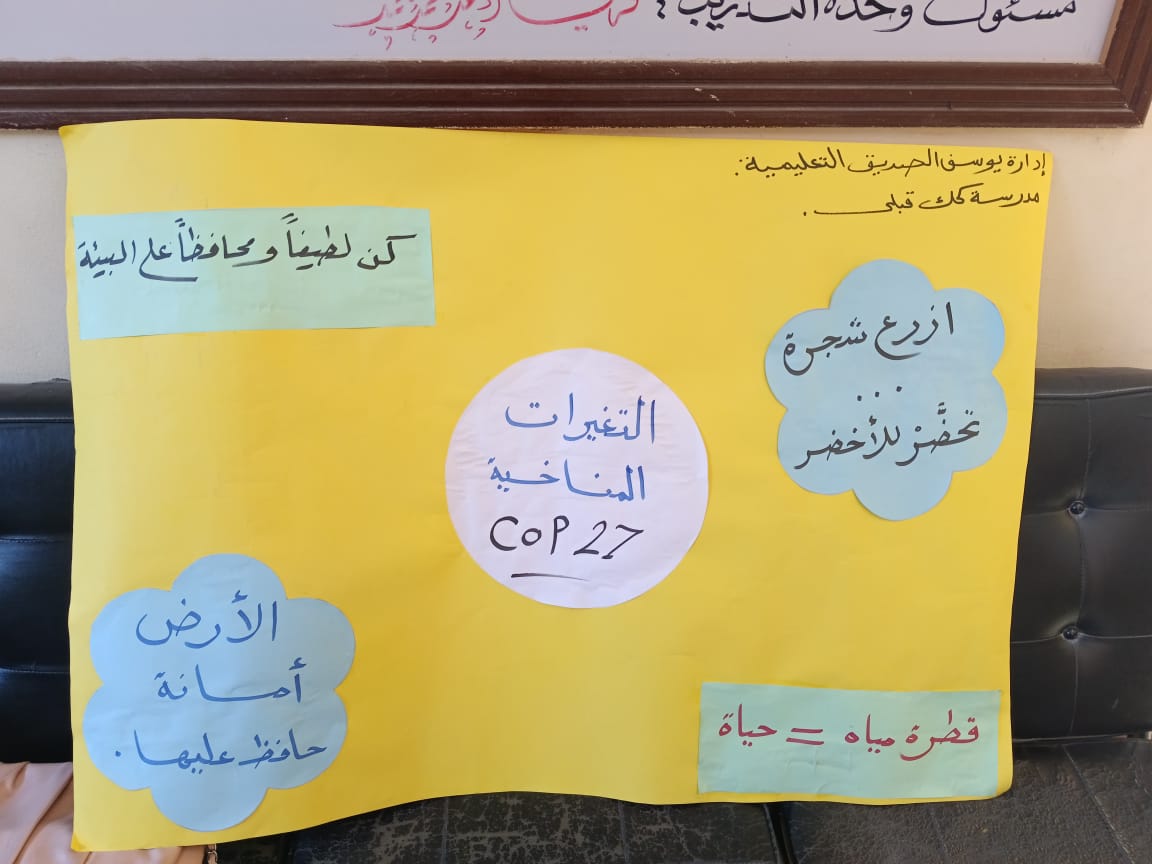 مسئول وحدة التدريب :
إدارة يوسف الصديق التعليمية :
مدرسة كحك قبلى .
كن لطيفاً ومحافظاً على البيئة
ازرع شجرة
...
تحضَّرْ للأخضر
التغيرات
المناخية
COP 27
الأرض
أمانة
حافظ عليها .
قطرة مياه = حياة